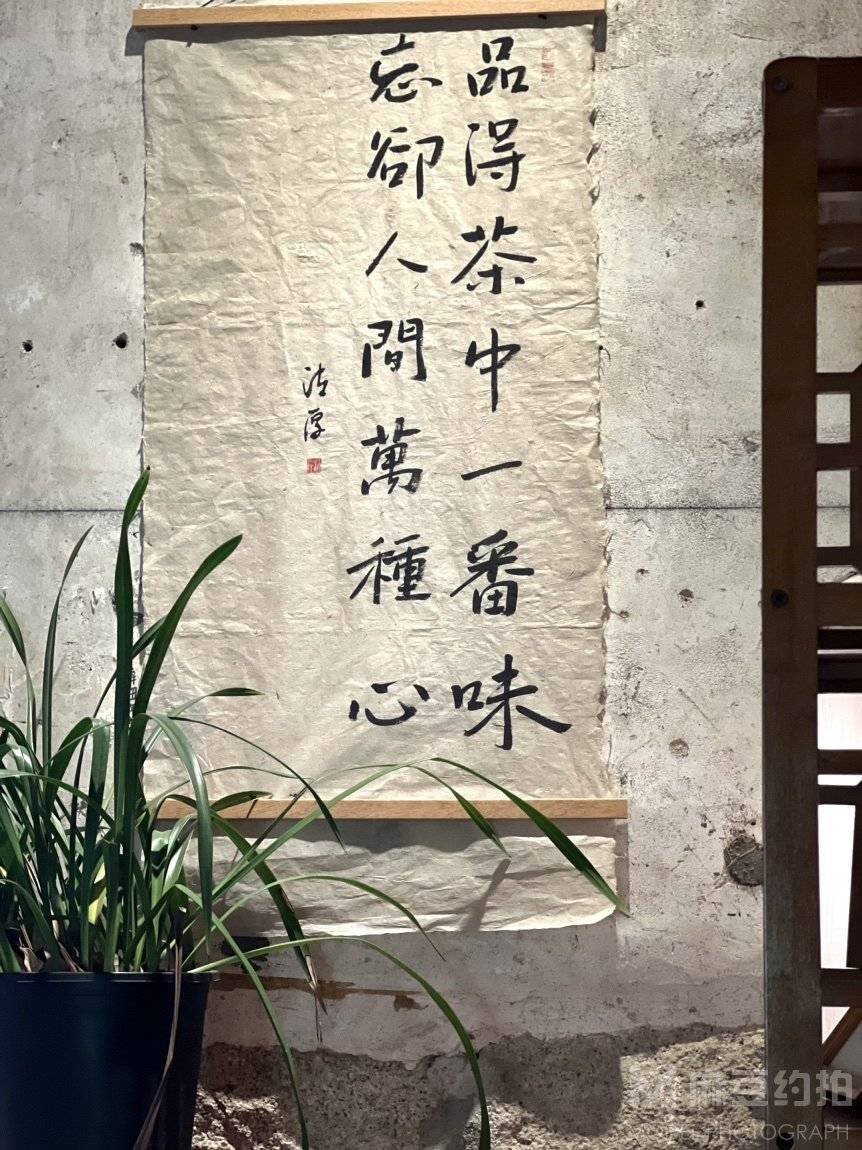 品得茶中一番味
忘卻人間萬種心
麻豆约拍
MODEL PHOTOGRAPH